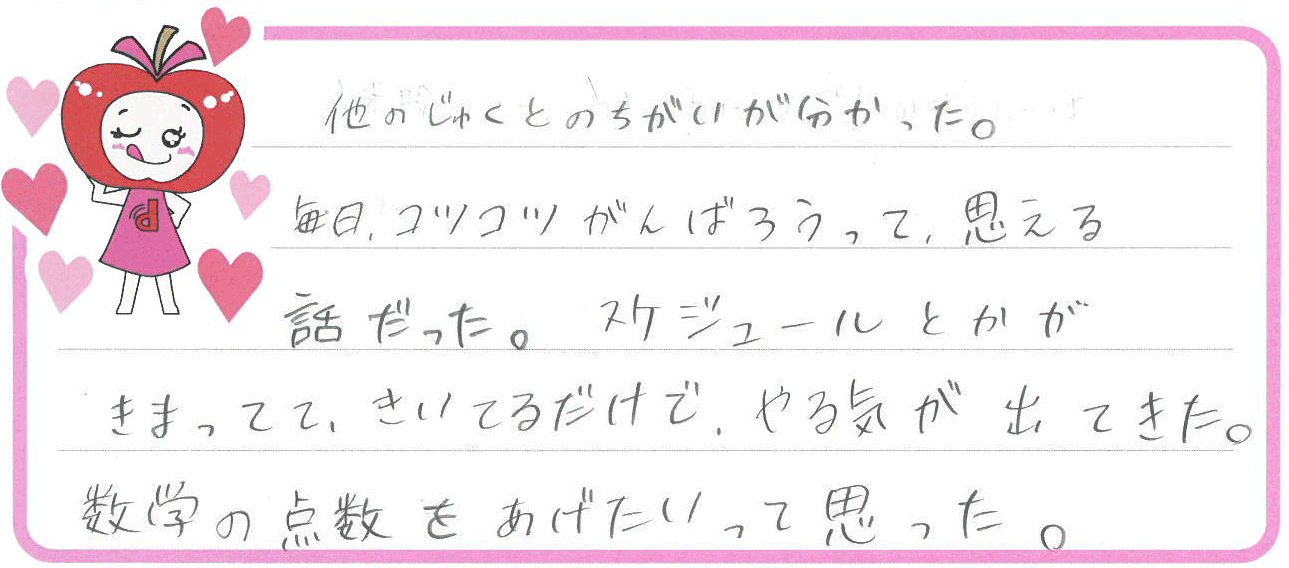 他のじゅくとのちがいが分かった。
毎日、コツコツがんばろうって、思える
話だった。 スケジュールとかが
きまってて、きいてるだけで、やる気が出てきた。
数学の点数をあげたいって思った。